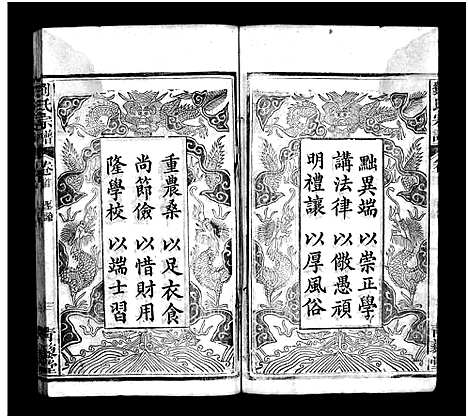 黜異端以崇正學
講法律以儆愚頑
明禮讓以厚風俗
重農桑以足衣食
尚節儉以惜財用
隆學校以端士習
劉氏宗譜
卷首